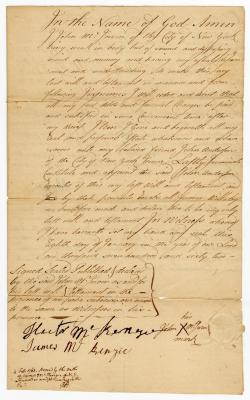 In the Name of God Amen
I John Mc of the City of New York
being weak in body but of sound and disposing
mind and memory and having my perfect
and understanding do make this my
last will and testament in manner and form
following Imprimis I will order and direct that
all my just debts and funeral charges be paid
and satisfied in some convenient time after
my decease Item I Give and bequeath all my
Real and personal Estate whatsoever and where
soever unto my beloved friend John Anderson
of the City of New York Lastly I nominate
Constitute and appoint the said John Anderson
of this my last will and testament and
do by these presents make all former wills by
me made and declare this to be my last
will and testament In Witness whereof
I have hereunto set my hand and seal this
Eighth day of January in the year of our Lord
one thousand seven hundred and sixty two
Signed Sealed Published & declared
by the said John Mc as and to
be his last will & Testament in the
presence of us
to the same as witnesses in his
his
John X Mc
mark
Hector Mc Kenzie
James Mc Kenzie